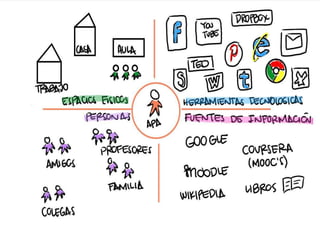 CASA
AULA
TRABAJO
ESPACIOS FISICOS
f
YOU
TUBE
DROPBOX
TED
P
e
S
W
t
HERRAMIENTAS TECNOLOGICAS
PERSONAS
PROFESORES
AMIGOS
FAMILIA
COLEGAS
FUENTES DE INFORMACIÓN
GOOGLE
COURSERA
(MOOC'S)
MOODLE
WIKIPEDIA
LIBROS